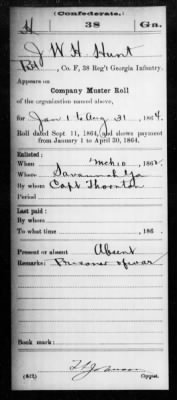 (Confederate.)
H 38 Ga.
J W H Hunt
Pvt, Co. F, 38 Reg't Georgia Infantry.
Appears on
Company Muster Roll
of the organization named above,
for Jan 1 to Aug 31, 1864.
Roll dated Sept 11, 1864, and shows payment
from January 1 to April 30, 1864.
Enlisted:
When Mch 10, 1862.
Where Savannah Ga
By whom Capt Thornton
Period
Last paid:
By whom
To what time , 186 .
Present or absent Absent
Remarks: Prisoner of war
Book mark:
(642) Copyist.